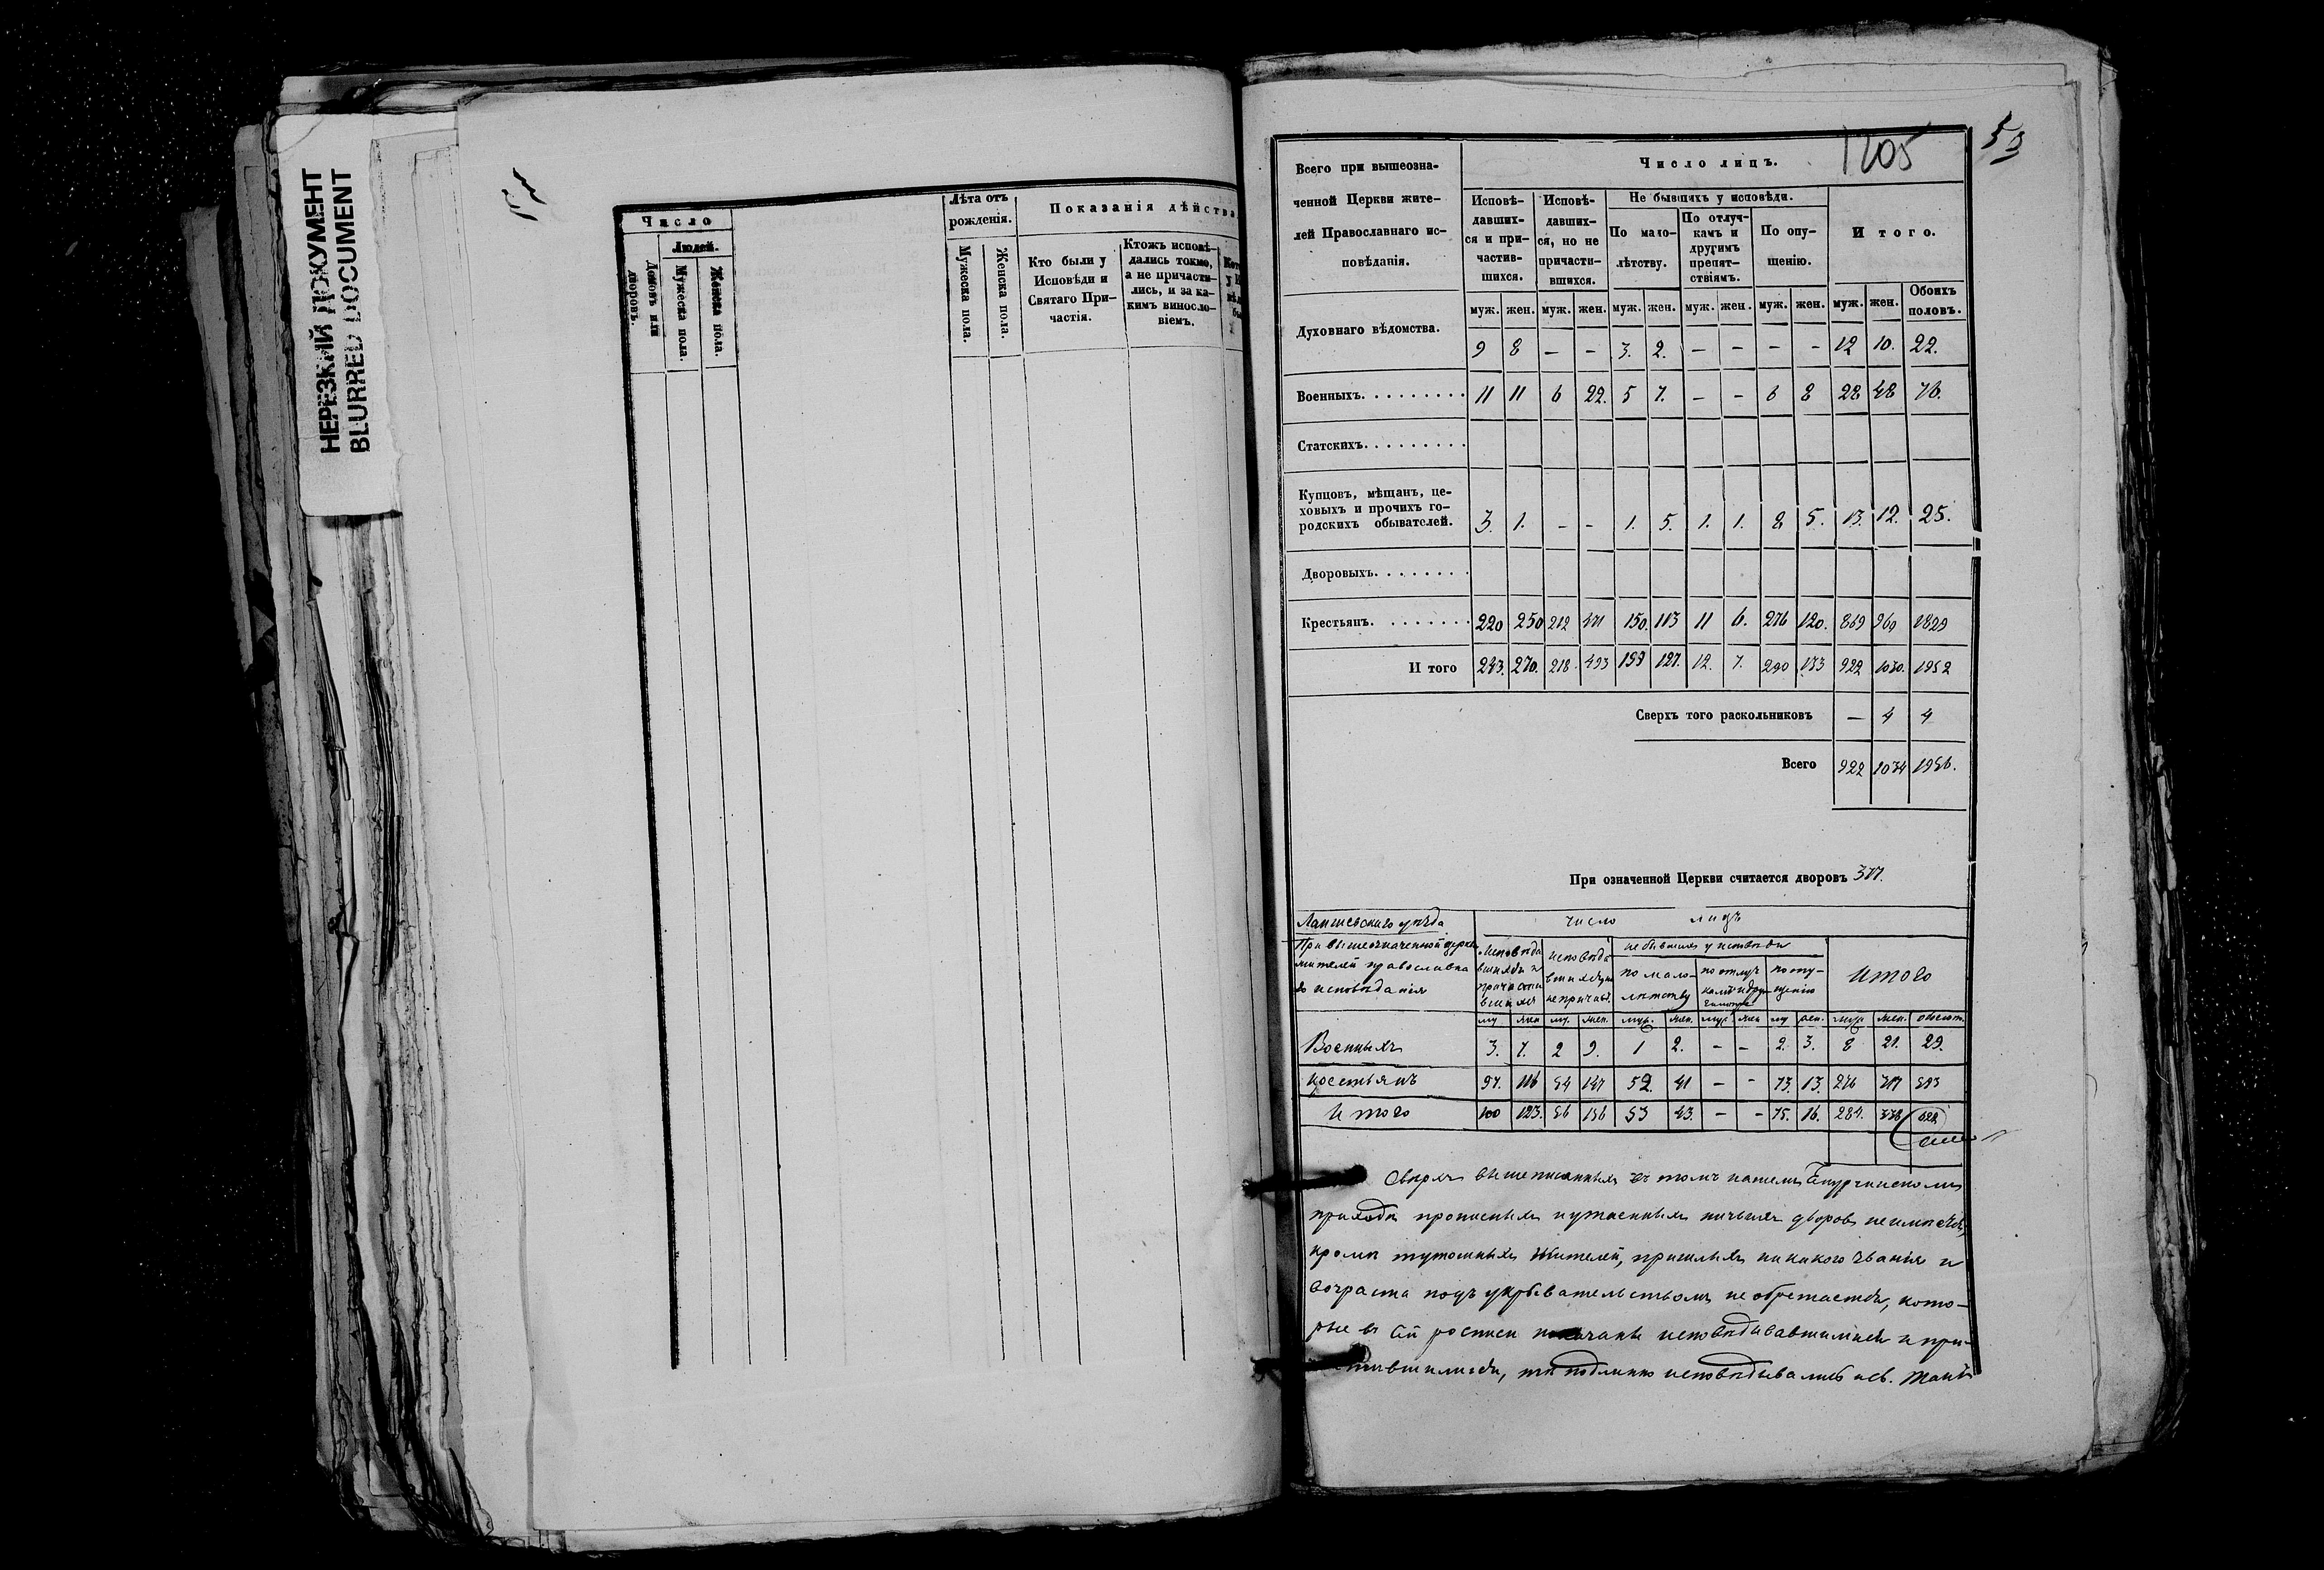 НЕРЕЗКИЙ ДОКУМЕНТ
BLURRED DOCUMENT
Число
Людей.
Домовъ или дворовъ.
Мужеска пола.
Женска пола.
Лѣта отъ рожденія.
Мужеска пола.
Женска пола.
Показанія дѣйства
Кто были у
Исповѣди и
Святаго При-
частія.
Ктожъ исповѣ-
дались токмо,
а не причасти-
лись, и за ка-
кимъ винословіемъ.
1205
53
Всего при вышеозна-
ченной Церкви жите-
лей Православнаго ис-
повѣданія.
Число лицъ.
Исповѣ-
давших-
ся и при-
частив-
шихся.
Исповѣ-
давших-
ся, но не
причасти-
вшихся.
Не бывшихъ у исповѣди.
По мало-
лѣтству.
По отлуч-
камъ и
другимъ
препят-
ствіямъ.
По опу-
щенію.
Итого.
муж. жен. муж. жен. муж. жен. муж. жен. муж. жен. муж. жен. Обоихъ половъ.
Духовнаго вѣдомства. 9 8 — — 3. 2. — — — — 12 10. 22.
Военныхъ. 11 11 6 22. 5 7. — — 6 8 28 48 76.
Статскихъ.
Купцовъ, мѣщанъ, це-
ховыхъ и прочихъ го-
родскихъ обывателей. 3. 1. — — 1. 5. 1. 1. 8 5. 13. 12. 25.
Дворовыхъ.
Крестьянъ. 220 250 212 471 150. 113 11 6. 276 120. 869 960 1829
И того 243. 270. 218. 493 159 127. 12. 7. 290 133 922 1030. 1952
Сверхъ того раскольниковъ — 4 4
Всего 922 1034 1956.
При означенной Церкви считается дворовъ 317.
Лаишевскаго уѣзда
число лицъ
При вышеозначенной церкви
жителей православна
го исповѣданія
Исповѣда
вшихся и
причасти
вшихся
исповѣда
вшихся
не причаст.
не бывшихъ у исповѣди
по мало-
лѣтству
по отлуч
камъ и дру-
по опу-
щенію
итого
му жен му. жен. муж. жен. муж. жен му жен. муж жен. обоего п.
Военныхъ 3. 7. 2 9. 1 2. — — 2. 3. 8 21. 29.
крестьянъ 97. 116 54 147 52. 41 — — 73. 13. 276 317 593
Итого 100 123. 56 156 53 43. — — 75. 16. 284. 338 622
Сверхъ вышеписанныхъ въ томъ нашемъ приходѣ прописныхъ и утаенныхъ ничьихъ дворовъ не имѣется,
кромѣ тутошныхъ жителей, пришлыхъ никакого званія и
возраста подъ укрывательствомъ не обрѣтается, кото-
рые въ сей росписи показаны исповѣдывавшимися и при-
тившимися, тѣ подлинно исповѣдывались и св. Таинъ